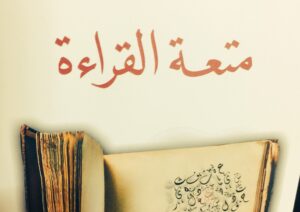 متعة القراءة